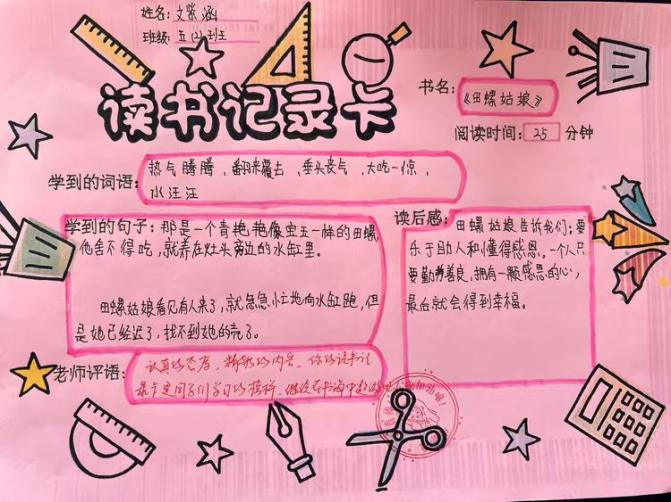 姓名：文紫涵
班级：五(2)班
读书记录卡
书名：《田螺姑娘》
阅读时间：25 分钟
学到的词语：热气腾腾、翻来覆去、垂头丧气、大吃一惊、
水汪汪
学到的句子：那是一个青艳艳像宝玉一样的田螺
他舍不得吃，就养在灶头旁边的水缸里。
田螺姑娘看见有人来了，就急急忙忙地向水缸跑，但
是她已经迟了，找不到她的壳了。
读后感：
田螺姑娘告诉我们：要
乐于助人和懂得感恩。一个人只
要勤劳善良，拥有一颗感恩的心，
最后就会得到幸福。
老师评语：
认真的态度，精彩的内容，你的读书记
录卡是同学们学习的榜样，继续在书海中